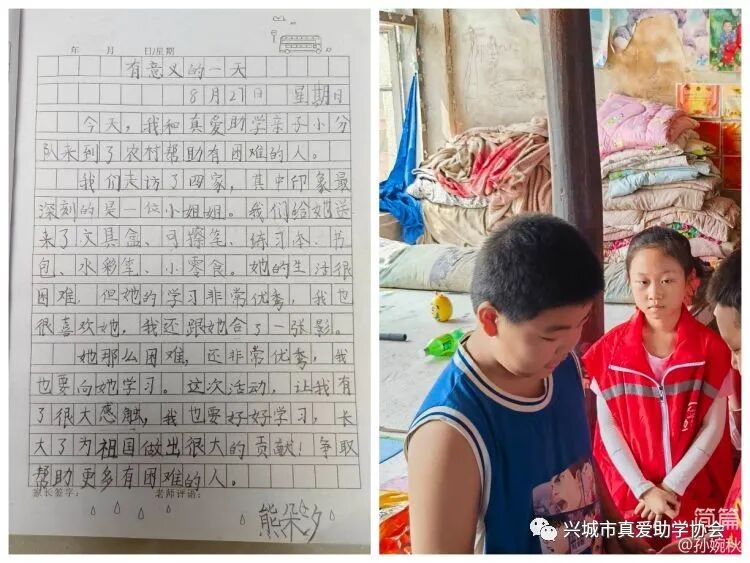 年 月 日/星期
有意义的一天
8月27日 星期日
今天，我和真爱助学亲子小分
队来到了农村帮助有困难的人。
我们走访了四家，其中印象最
深刻的是一位小姐姐。我们给她送
来了文具盒、可擦笔、练习本、书
包、水彩笔、小零食。她的生活很
困难，但她的学习非常优秀，我也
很喜欢她，我还跟她合了一张影。
她那么困难，还非常优秀，我
也要向她学习。这次活动，让我有
了很大感触，我也要好好学习，长
大了为祖国做出很大的贡献！争取
帮助更多有困难的人。
家长签字： 老师评语：
熊朵汐
简篇
兴城市真爱助学协会
@孙婉秋